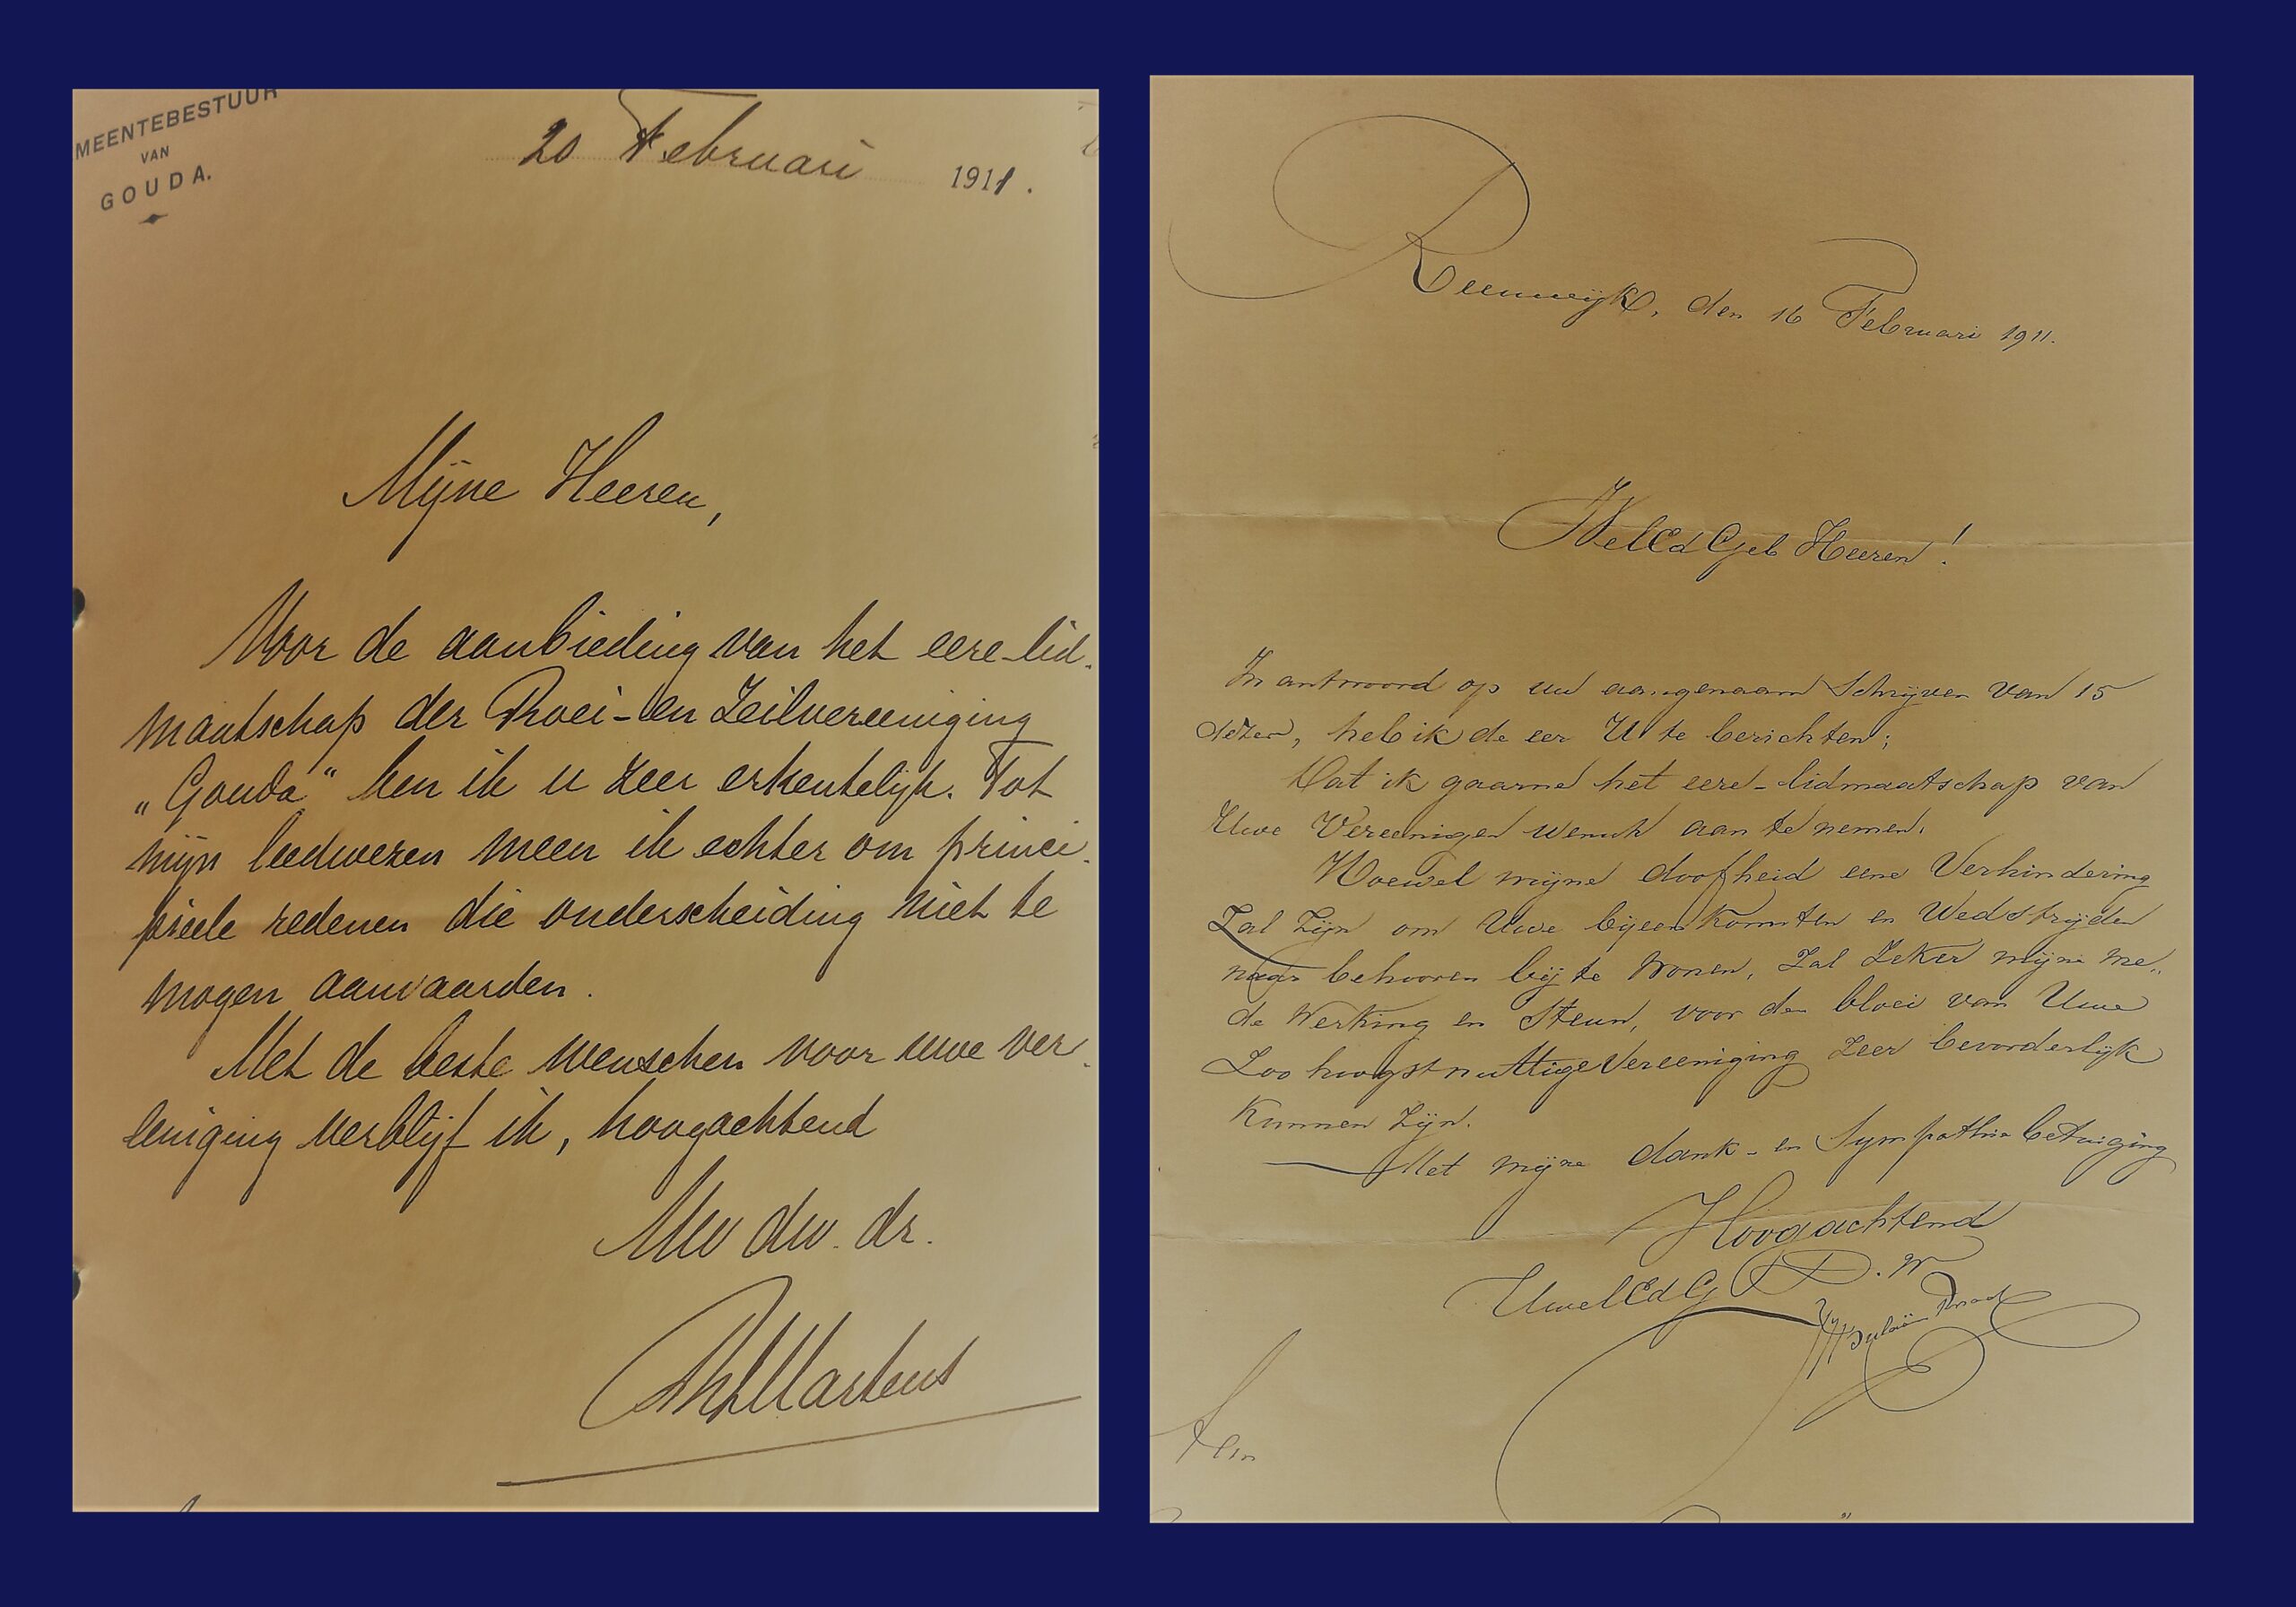 MEENTEBESTUUR
VAN
GOUDA.
20 Februari 1911.
Mijne Heeren,
Voor de aanbieding van het eere-lid-
maatschap der Roei- en Zeilvereeniging
„Gouda" ben ik u zeer erkentelijk. Tot
mijn leedwezen meen ik echter om princi-
pieele redenen die onderscheiding niet te
mogen aanvaarden.
Met de beste wenschen voor uwe ver-
eeniging verblijf ik, hoogachtend
Uw dw. dr.
Martens
Reeuwijk, den 16 Februari 1911.
WelEdGeb Heeren!
In antwoord op uw aangenaam Schrijven van 15
dezer, heb ik de eer U te berichten;
Dat ik gaarne het eere-lidmaatschap van
Uwe Vereenigen wensch aan te nemen.
Hoewel mijne doofheid eene Verhindering
Zal Zijn om Uwe bijeenkomsten en Wedstrijden
naar behooren bij te Wonen, Zal Zeker mijne me„
de Werking en Steun, voor den bloei van Uwe
Zoo hoogst nuttige Vereeniging Zeer bevorderlijk
Kunnen Zijn.
Met mijne dank- en Sympathie betuiging
Hoogachtend
UwelEdG D. W
Aan